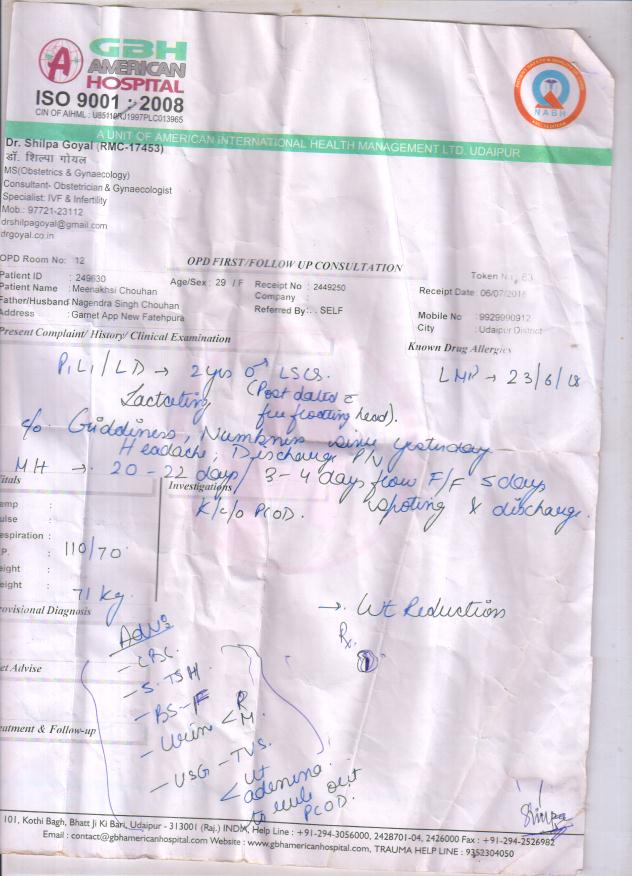 GBH
AMERICAN
HOSPITAL
ISO 9001 : 2008
CIN OF AIHML : U85110RJ1997PLC013965
NABH
A UNIT OF AMERICAN INTERNATIONAL HEALTH MANAGEMENT LTD. UDAIPUR
Dr. Shilpa Goyal (RMC-17453)
डॉ. शिल्पा गोयल
MS(Obstetrics & Gynaecology)
Consultant- Obstetrician & Gynaecologist
Specialist: IVF & Infertility
Mob.: 97721-23112
drshilpagoyal@gmail.com
drgoyal.co.in
OPD Room No: 12
OPD FIRST/FOLLOW UP CONSULTATION
Token No. 63
Patient ID : 249630
Age/Sex : 29 / F
Receipt No : 2449250
Receipt Date : 06/07/2018
Patient Name : Meenakhsi Chouhan
Company
Father/Husband Nagendra Singh Chouhan
Referred By : . SELF
Mobile No : 9929990912
Address : Gamet App New Fatehpura
City : Udaipur District
Present Complaint/ History/ Clinical Examination
Known Drug Allergies
P1L1/LD → 2yrs ♂ LSCS.
LMP → 23/6/18
Lactating (Post dated c̄
free floating head).
c/o. Giddiness, Numbness since yesterday
Headache, Discharge P/V
MH → 20-22 days/ 3-4 days flow F/F 5 days
spotting & discharge.
itals
Investigations
K/c/o PCOD.
emp :
ulse :
espiration :
.P. : 110/70
eight :
eight : 71 kg.
rovisional Diagnosis
→ Wt Reduction
Rx
Adv:
- CBC
- S. TSH
iet Advise
- BS-F
- Urine < R
M.
eatment & Follow-up
- USG - TVS.
< ut
adenexa
to rule out
PCOD.
Shilpa
101, Kothi Bagh, Bhatt Ji Ki Bari, Udaipur - 313001 (Raj.) INDIA, Help Line : +91-294-3056000, 2428701-04, 2426000 Fax : +91-294-2526982
Email : contact@gbhamericanhospital.com Website : www.gbhamericanhospital.com, TRAUMA HELP LINE : 9352304050